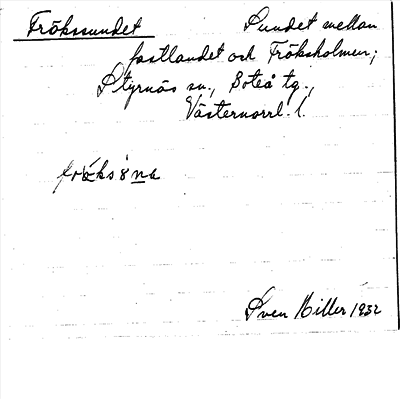 Fröksundet Sundet mellan
fastlandet och Fröksholmen;
Styrnäs sn., Boteå tg.,
Västernorrl. l.
Sven Hiller 1932